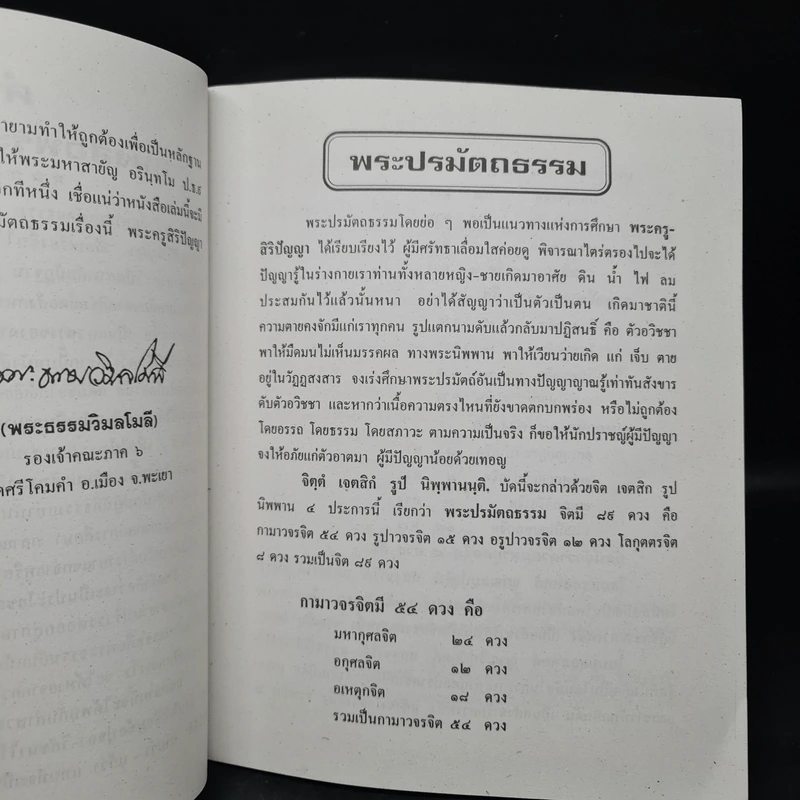 ายามทำให้ถูกต้องเพื่อเป็นหลักฐาน
ให้พระมหาสายัญ อรินฺทโม ป.ธ.๙
กทีหนึ่ง เชื่อแน่ว่าหนังสือเล่มนี้จะมี
มัตถธรรมเรื่องนี้ พระครูสิริปัญญา
(พระธรรมวิมลโมลี)
รองเจ้าคณะภาค ๖
ศรีโคมคำ อ.เมือง จ.พะเยา
พระปรมัตถธรรม
พระปรมัตถธรรมโดยย่อ ๆ พอเป็นแนวทางแห่งการศึกษา พระครู-
สิริปัญญา ได้เรียบเรียงไว้ ผู้มีศรัทธาเลื่อมใสค่อยดู พิจารณาไตร่ตรองไปจะได้
ปัญญารู้ในร่างกายเราท่านทั้งหลายหญิง-ชายเกิดมาอาศัย ดิน น้ำ ไฟ ลม
ประสมกันไว้แล้วนั้นหนา อย่าได้สัญญาว่าเป็นตัวเป็นตน เกิดมาชาตินี้
ความตายคงจักมีแก่เราทุกคน รูปแตกนามดับแล้วกลับมาปฏิสนธิ์ คือ ตัวอวิชชา
พาให้มืดมนไม่เห็นมรรคผล ทางพระนิพพาน พาให้เวียนว่ายเกิด แก่ เจ็บ ตาย
อยู่ในวัฏฏสงสาร จงเร่งศึกษาพระปรมัตถ์อันเป็นทางปัญญาญาณรู้เท่าทันสังขาร
ดับตัวอวิชชา และหากว่าเนื้อความตรงไหนที่ยังขาดตกบกพร่อง หรือไม่ถูกต้อง
โดยอรรถ โดยธรรม โดยสภาวะ ตามความเป็นจริง ก็ขอให้นักปราชญ์ผู้มีปัญญา
จงให้อภัยแก่ตัวอาตมา ผู้มีปัญญาน้อยด้วยเทอญ
จิตฺตํ เจตสิกํ รูปํ นิพฺพานนฺติ. บัดนี้จะกล่าวด้วยจิต เจตสิก รูป
นิพพาน ๔ ประการนี้ เรียกว่า พระปรมัตถธรรม จิตมี ๘๙ ดวง คือ
กามาวจรจิต ๕๔ ดวง รูปาวจรจิต ๑๕ ดวง อรูปาวจรจิต ๑๒ ดวง โลกุตตรจิต
๘ ดวง รวมเป็นจิต ๘๙ ดวง
กามาวจรจิตมี ๕๔ ดวง คือ
มหากุศลจิต ๒๔ ดวง
อกุศลจิต ๑๒ ดวง
อเหตุกจิต ๑๘ ดวง
รวมเป็นกามาวจรจิต ๕๔ ดวง